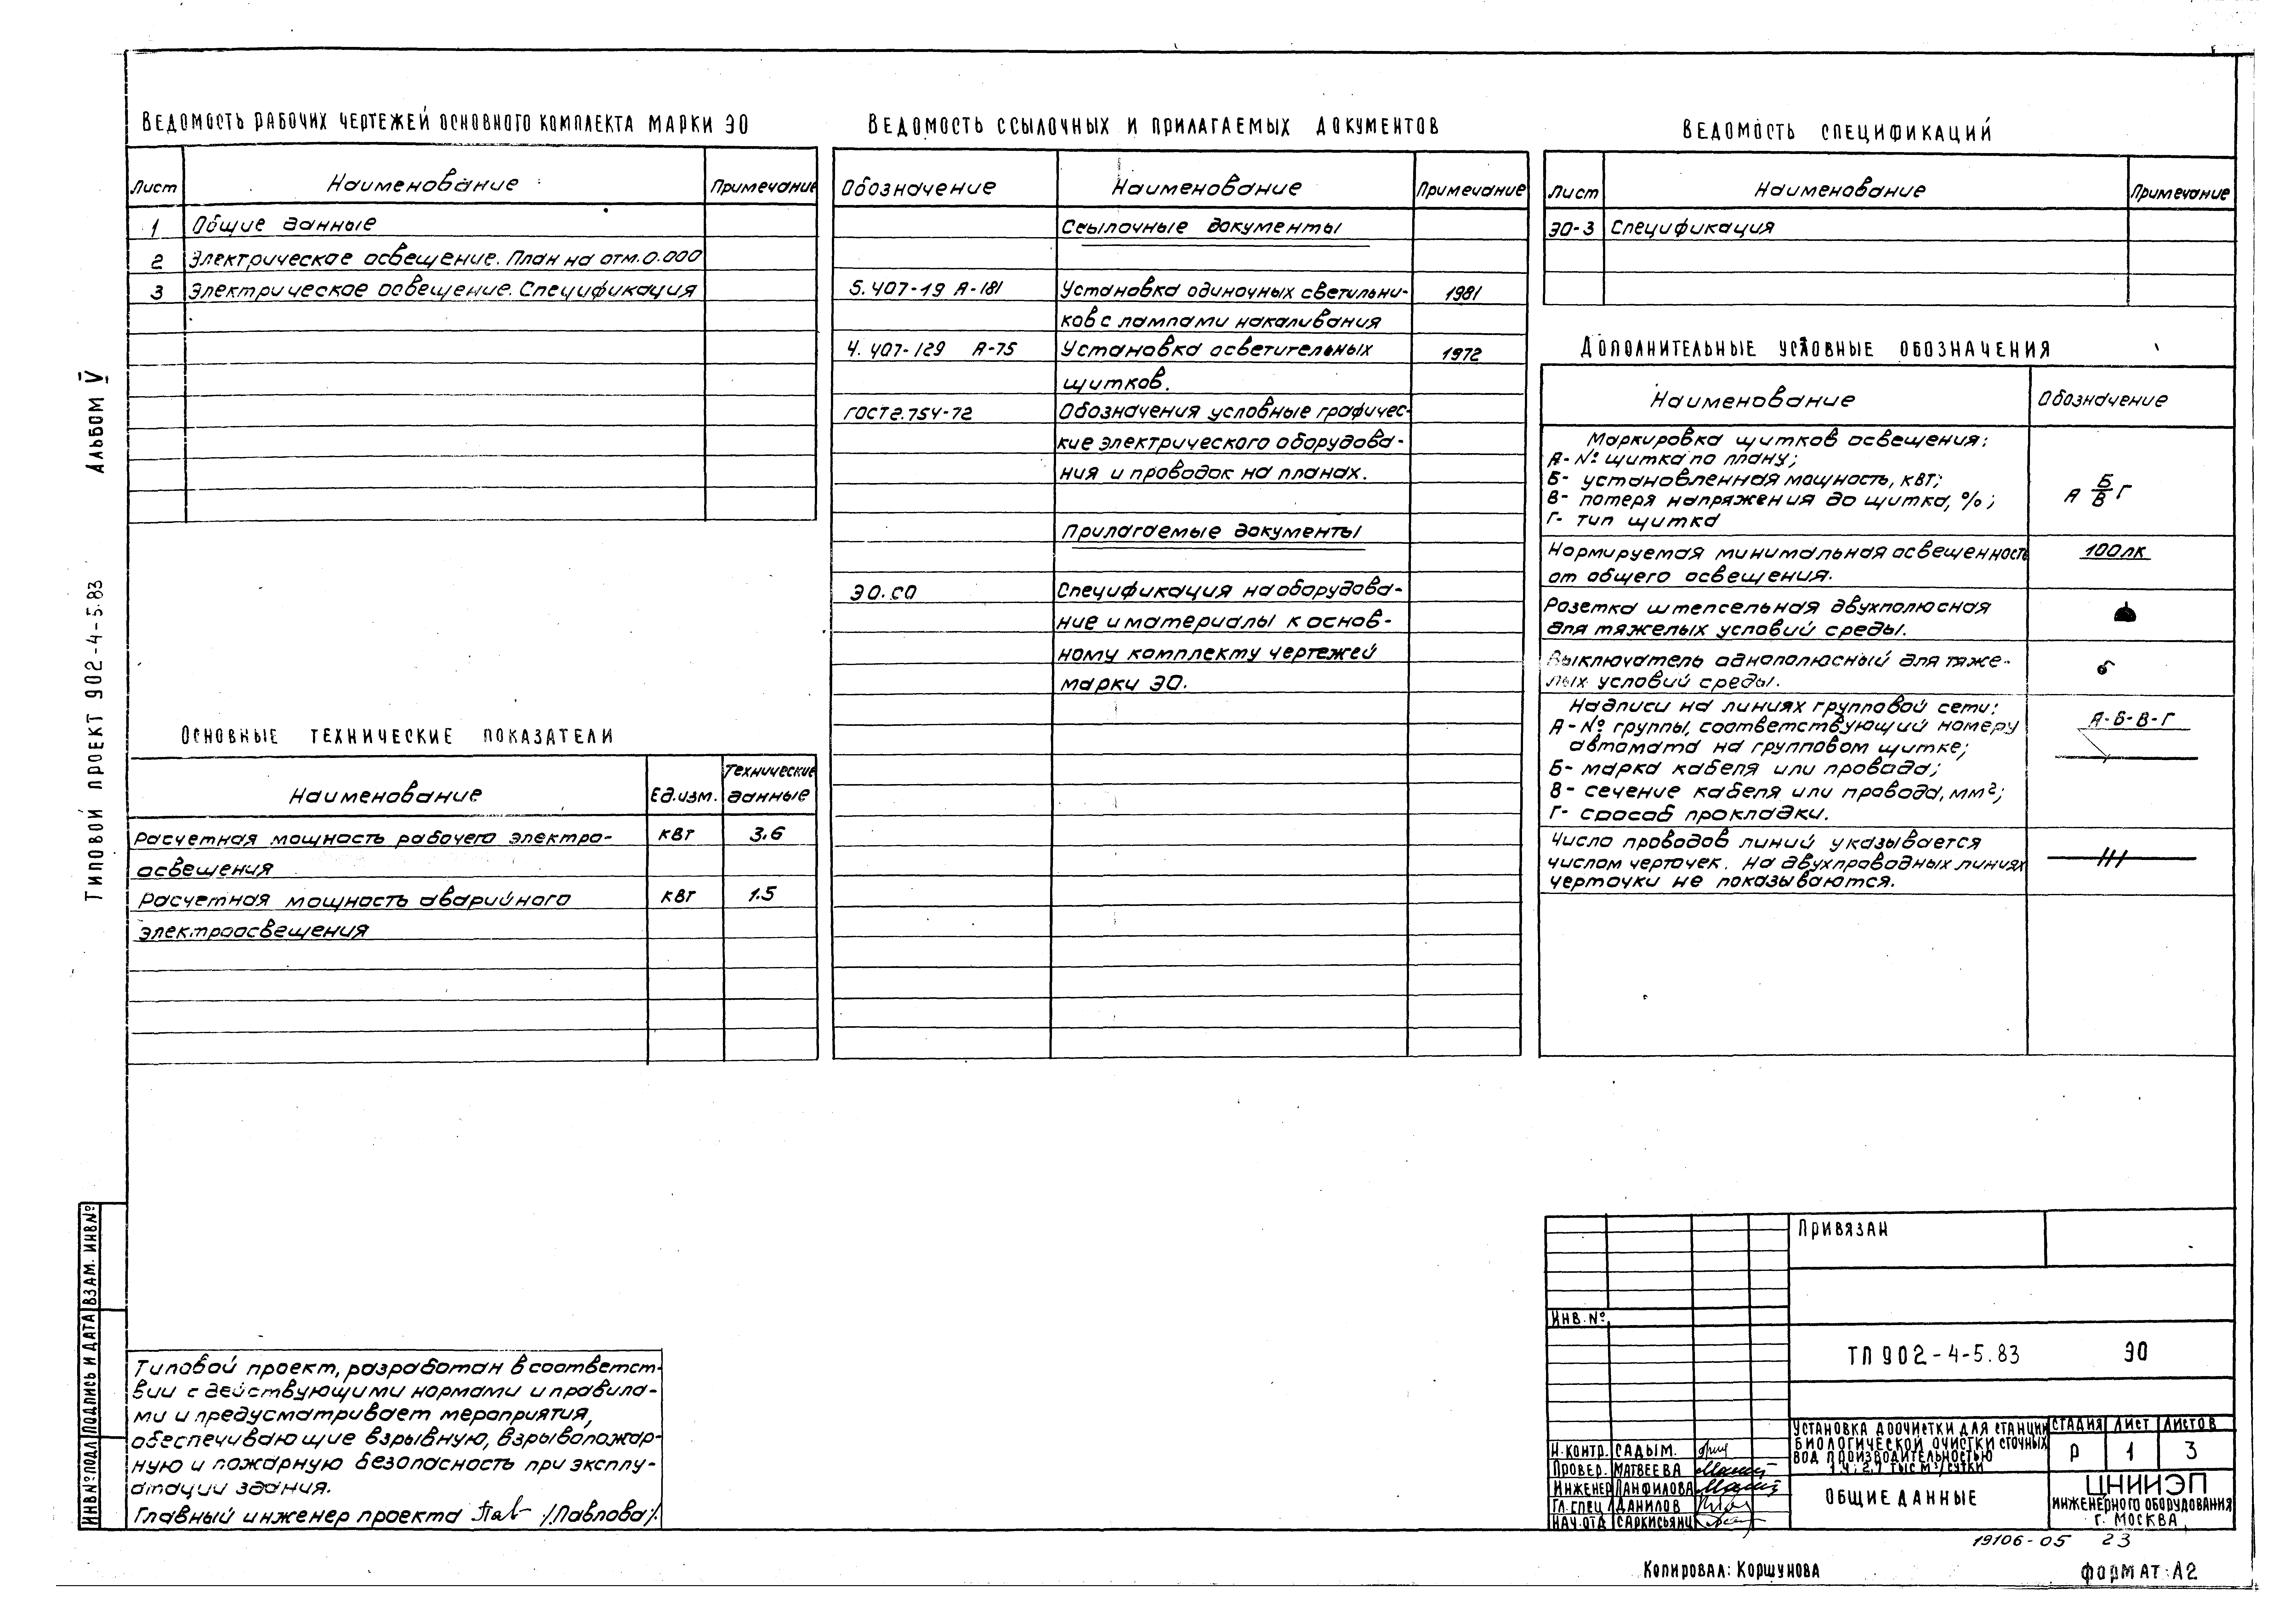 Альбом V
Типовой проект 902-4-5.83
Ведомость рабочих чертежей основного комплекта марки ЭО
Лист Наименование Примечание
1 Общие данные
2 Электрическое освещение. План на отм. 0.000
3 Электрическое освещение. Спецификация
Основные технические показатели
Наименование Ед.изм. Технические данные
Расчетная мощность рабочего электро- квт 3.6
освещения
Расчетная мощность аварийного квт 1.5
электроосвещения
Ведомость ссылочных и прилагаемых документов
Обозначение Наименование Примечание
Ссылочные документы
5.407-19 А-181 Установка одиночных светильни- 1981
ков с лампами накаливания
4.407-129 А-75 Установка осветительных 1972
щитков.
ГОСТ 2.754-72 Обозначения условные графичес-
кие электрического оборудова-
ния и проводок на планах.
Прилагаемые документы
ЭО.СО Спецификация на оборудова-
ние и материалы к основ-
ному комплекту чертежей
марки ЭО.
Ведомость спецификаций
Лист Наименование Примечание
ЭО-3 Спецификация
Дополнительные условные обозначения
Наименование Обозначение
Маркировка щитков освещения:
А- № щитка по плану;
Б- установленная мощность, квт;
В- потеря напряжения до щитка, %;
Г- тип щитка
А Б/В Г
Нормируемая минимальная освещенность 100лк
от общего освещения.
Розетка штепсельная двухполюсная
для тяжелых условий среды.
Выключатель однополюсный для тяже-
лых условий среды.
Надписи на линиях групповой сети:
А- № группы, соответствующий номеру
автомата на групповом щитке;
Б- марка кабеля или провода;
В- сечение кабеля или провода, мм²;
Г- способ прокладки.
А-Б-В-Г
Число проводов линий указывается
числом черточек. На двухпроводных линиях
черточки не показываются.
Инв № подл Подпись и дата Взам. инв №
Типовой проект, разработан в соответст-
вии с действующими нормами и правила-
ми и предусматривает мероприятия,
обеспечивающие взрывную, взрывопожар-
ную и пожарную безопасность при эксплу-
атации здания.
Главный инженер проекта /Павлова/.
Привязан
Инв. №
ТП 902-4-5.83 ЭО
Н.контр. Садым.
Провер. Матвеева
Инженер Панфилова
Гл.спец Данилов
Нач.отд Саркисьянц
Установка доочистки для станции
биологической очистки сточных
вод производительностью
1,4; 2,7 тыс м³/сутки
Стадия Лист Листов
Р 1 3
Общие данные
ЦНИИЭП
инженерного оборудования
г. Москва
19106-05 23
Копировал: Коршунова
Формат: А2